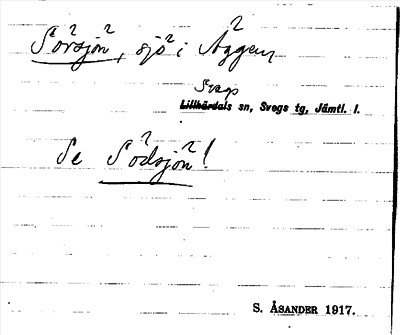 Sörsjön, sjö i Äggen,
Svegs
Lillhärdals sn, Svegs tg, Jämtl. l.
Se Södsjön!
S. ÅSANDER 1917.